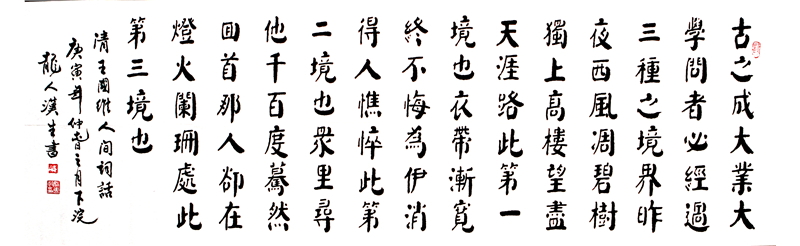 古之成大業大
學問者必經過
三種之境界昨
夜西風凋碧樹
獨上高樓望盡
天涯路此第一
境也衣帶漸寬
終不悔為伊消
得人憔悴此第
二境也眾里尋
他千百度驀然
回首那人卻在
燈火闌珊處此
第三境也
清王國維人间詞話
庚寅年仲春之月下浣
龍人漢生書